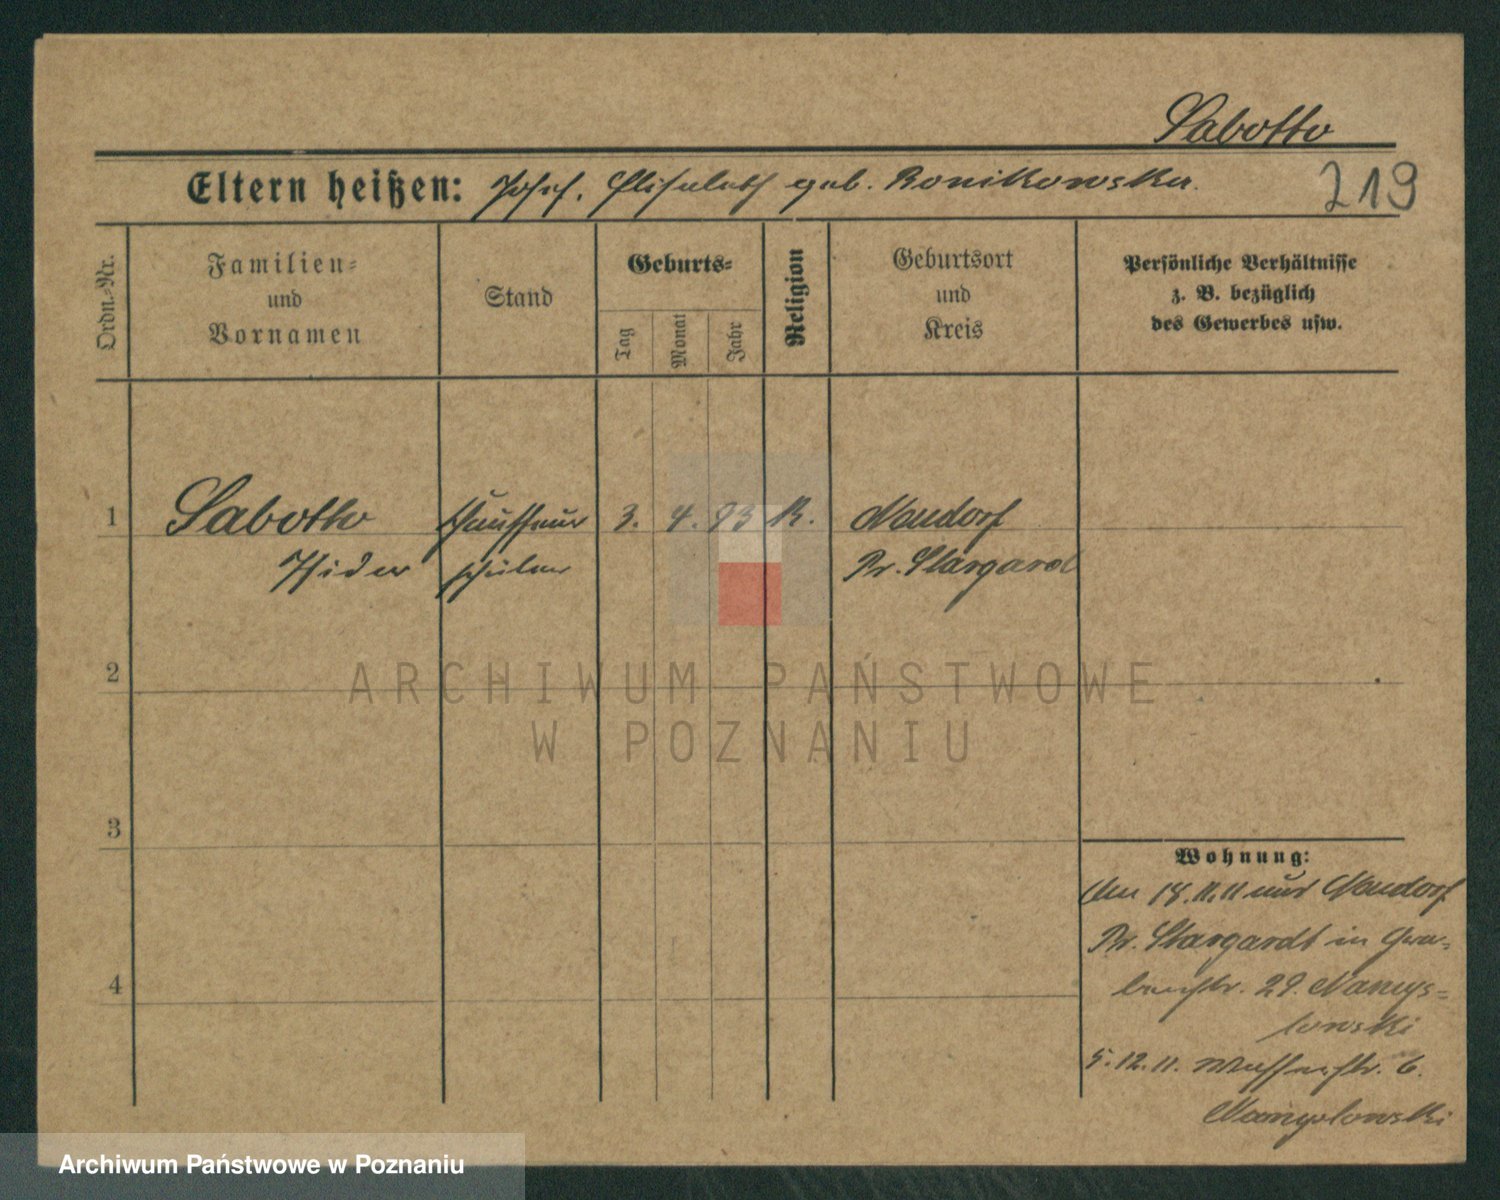 Sabotto
Eltern heißen: Josef, Elisabeth geb. Ronikowska.
219
Ordn.-Nr.
Familien-
und
Vornamen
Stand
Geburts-
Tag
Monat
Jahr
Religion
Geburtsort
und
Kreis
Persönliche Verhältnisse
z. B. bezüglich
des Gewerbes usw.
1 Sabotto 3. 4. 93 K. Neudorf
Isidor schüler Pr. Stargard
2
ARCHIWUM PAŃSTWOWE
W POZNANIU
3
4
Wohnung:
Am 18.11.11 aus Neudorf
Pr. Stargardt in Gra-
benstr. 29. Namys-
lowski
5.12.11. str. 6.
Namyslowski
Archiwum Państwowe w Poznaniu